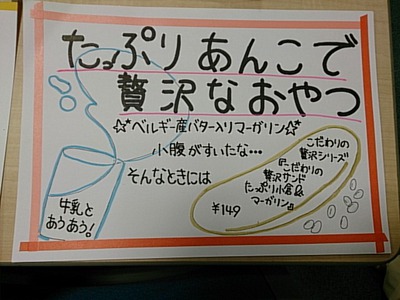 たっぷりあんこで
贅沢なおやつ
☆ベルギー産バター入りマーガリン☆
小腹がすいたな…
そんなときには
こだわりの
贅沢シリーズ
『こだわりの
贅沢サンド
たっぷり小倉&
マーガリン』
¥149
牛乳と
あうあう!